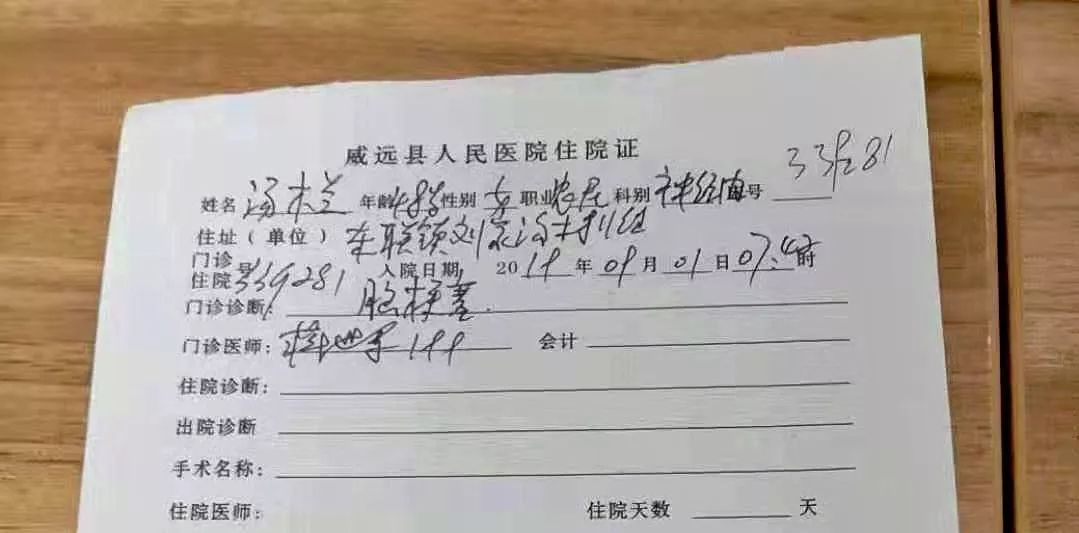 威远县人民医院住院证
姓名 汤木兰 年龄 48岁 性别 女 职业 农民 科别 神经内 号
住址（单位）车联镇刘家沟村 组
门诊
住院 号 339281 入院日期 2019 年 09 月 01 日 07:47 时
门诊诊断: 脑梗塞.
门诊医师: 会计
住院诊断:
出院诊断
手术名称:
住院医师: 住院天数 天